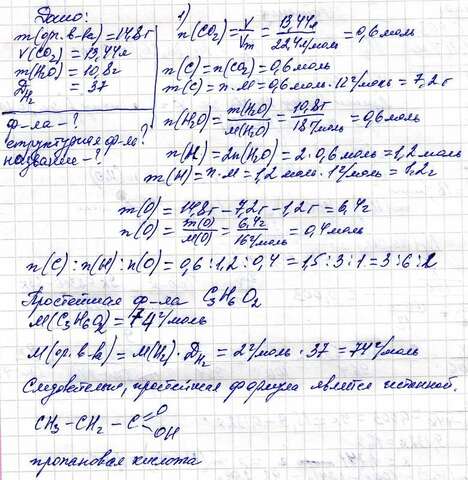 Дано:
m(орг. в-ва) = 14,8 г
V(CO₂) = 13,44 л
m(H₂O) = 10,8 г
D_H₂ = 37
ф-ла - ?
структурная ф-ла ?
название - ?
1)
n(CO₂) = V/Vm = 13,44л/22,4л/моль = 0,6 моль
n(C) = n(CO₂) = 0,6 моль
m(C) = n · M = 0,6 моль · 12 г/моль = 7,2 г
n(H₂O) = m(H₂O)/M(H₂O) = 10,8г/18г/моль = 0,6 моль
n(H) = 2n(H₂O) = 2 · 0,6 моль = 1,2 моль
m(H) = n · M = 1,2 моль · 1 г/моль = 1,2 г
m(O) = 14,8 г - 7,2 г - 1,2 г = 6,4 г
n(O) = m(O)/M(O) = 6,4г/16г/моль = 0,4 моль
n(C) : n(H) : n(O) = 0,6 : 1,2 : 0,4 = 1,5 : 3 : 1 = 3 : 6 : 2
Простейшая ф-ла C₃H₆O₂
M(C₃H₆O₂) = 74 г/моль
M(ор. в-ва) = M(H₂) · D_H₂ = 2 г/моль · 37 = 74 г/моль
Следовательно, простейшая формула является истинной.
CH₃ - CH₂ - C =O
OH
пропановая кислота